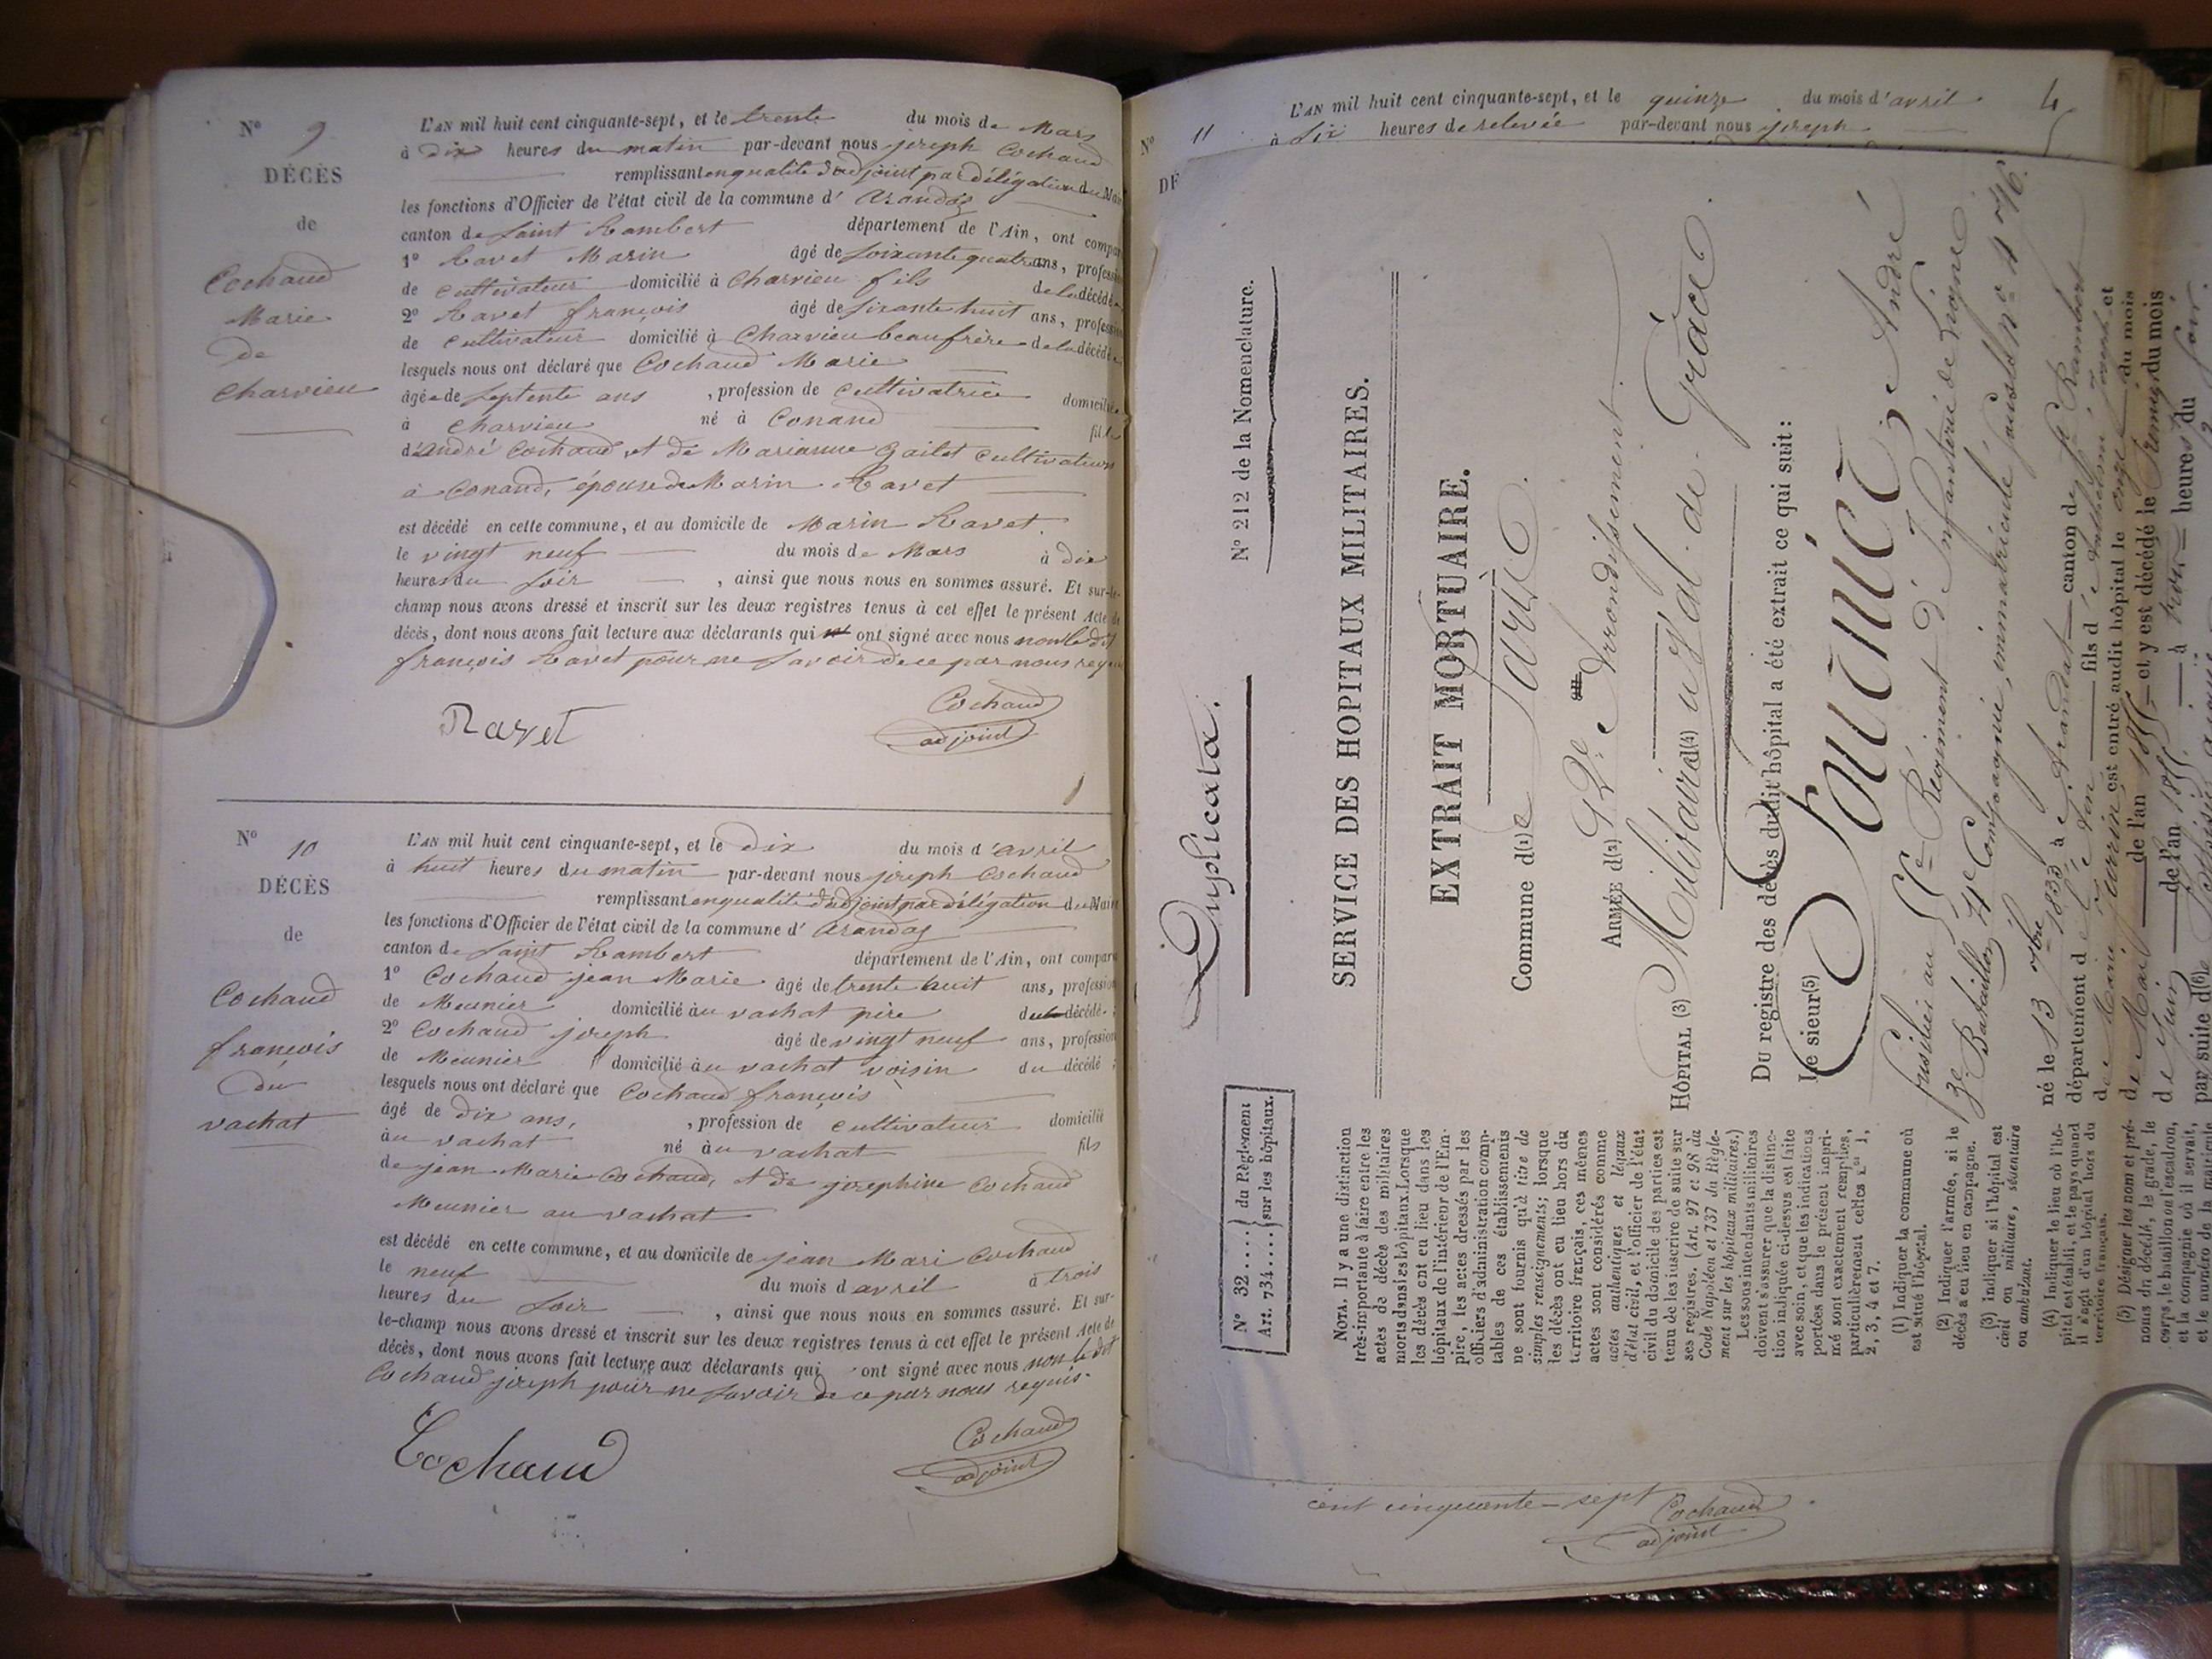 N° 9
DÉCÈS
de
Cochaud
Marie
de
Charvieu
L'AN mil huit cent cinquante-sept, et le trente du mois de Mars
à dix heures du matin par-devant nous joseph Cochaud
remplissant en qualité d'adjoint par délégation du Mai
les fonctions d'Officier de l'état civil de la commune d' Arandas
canton de Saint Rambert département de l'Ain, ont compar
1° Ravet Marin âgé de soixante quatre ans, profession
de cultivateur domicilié à Charvieu fils de la décédée
2° Ravet françois âgé de soixante huit ans, profession
de cultivateur domicilié à Charvieu beaufrère de la décédée
lesquels nous ont déclaré que Cochaud Marie
âgée de septente ans , profession de cultivatrice domiciliée
à charvieu né à Conand fille
d'andré Cochaud, et de Marianne Gailet cultivateurs
à Conand, épouse de Marin Ravet
est décédé en cette commune, et au domicile de Marin Ravet.
le vingt neuf du mois de Mars à dix
heures du soir , ainsi que nous nous en sommes assuré. Et sur-le-
champ nous avons dressé et inscrit sur les deux registres tenus à cet effet le présent Acte de
décès, dont nous avons fait lecture aux déclarants qui ont signé avec nous non le dit
françois Ravet pour ne savoir de ce par nous requis
Ravet
Cochaud
adjoint
N° 10
DÉCÈS
de
Cochaud
françois
du
vachat
L'AN mil huit cent cinquante-sept, et le dix du mois d'avril
à huit heures du matin par-devant nous joseph Cochaud
remplissant en qualité d'adjoint par délégation du Mai
les fonctions d'Officier de l'état civil de la commune d' Arandas
canton de Saint Rambert département de l'Ain, ont compar
1° Cochaud jean Marie âgé de trente huit ans, profession
de Meunier domicilié au vachat père du décédé ;
2° Cochaud joseph âgé de vingt neuf ans, profession
de Meunier domicilié au vachat voisin du décédé ;
lesquels nous ont déclaré que Cochaud françois
âgé de dix ans, , profession de cultivateur domicilié
au vachat né au vachat fils
de jean Marie Cochaud, et de josephine Cochaud
Meunier au vachat
est décédé en cette commune, et au domicile de jean Mari Cochaud
le neuf du mois d avril à trois
heures du soir , ainsi que nous nous en sommes assuré. Et sur-
le-champ nous avons dressé et inscrit sur les deux registres tenus à cet effet le présent Acte de
décès, dont nous avons fait lecture aux déclarants qui ont signé avec nous non le dit
Cochaud joseph pour ne savoir de ce par nous requis.
Cochaud
Cochaud
adjoint
4
N° 11
L'AN mil huit cent cinquante-sept, et le quinze du mois d'avril
à six heures de relevée par-devant nous joseph
DÉ
Duplicata.
N° 212 de la Nomenclature.
N° 32 ..... du Règlement
Art. 734 .... sur les hôpitaux.
SERVICE DES HOPITAUX MILITAIRES.
EXTRAIT MORTUAIRE.
Commune d(1) e Paris.
ARMÉE d(2) Arrondissement.
HÔPITAL (3) Militaire d(4) u Val. de. Grâce.
DU registre des décès dudit hôpital a été extrait ce qui suit :
Le sieur(5) André
fusilier au Régiment d'Infanterie de Ligne
3e Bataillon 4e Compagnie, immatriculé sous le n° 4476.
né le 13 7bre 1833 à Arandat canton de St Rambert
département d e l'Ain fils d e Anthelme Joseph et
d e Marie est entré audit hôpital le onze du mois
de Mai de l'an 1855 et y est décédé le du mois
de Juin de l'an 1855 à trois heures du soir.
par suite d(6)
NOTA. Il y a une distinction
très-importante à faire entre les
actes de décès des militaires
morts dans les hôpitaux. Lorsque
les décès ont eu lieu dans les
hôpitaux de l'intérieur de l'Em-
pire, les actes dressés par les
officiers d'administration comp-
tables de ces établissements
ne sont fournis qu'à titre de
simples renseignements ; lorsque
les décès ont eu lieu hors du
territoire français, ces mêmes
actes sont considérés comme
actes authentiques et légaux
d'état civil, et l'officier de l'état
civil du domicile des parties est
tenu de les inscrire de suite sur
ses registres. (Art. 97 et 98 du
Code Napoléon et 737 du Règle-
ment sur les hôpitaux militaires.)
Les sous intendants militaires
doivent s'assurer que la distinc-
tion indiquée ci-dessus est faite
avec soin, et que les indications
portées dans le présent impri-
mé sont exactement remplies,
particulièrement celles nos 1,
2, 3, 4 et 7.
(1) Indiquer la commune où
est situé l'hôpital.
(2) Indiquer l'armée, si le
décès a eu lieu en campagne.
(3) Indiquer si l'hôpital est
civil ou militaire, sédentaire
ou ambulant.
(4) Indiquer le lieu où l'hô-
pital est établi, et le pays quand
il s'agit d'un hôpital hors du
territoire français.
(5) Désigner les nom et pré-
noms du décédé, le grade, le
corps, le bataillon ou l'escadron,
et la compagnie où il servait,
et le numéro de la matricule
cent cinquante-sept
Cochaud
adjoint